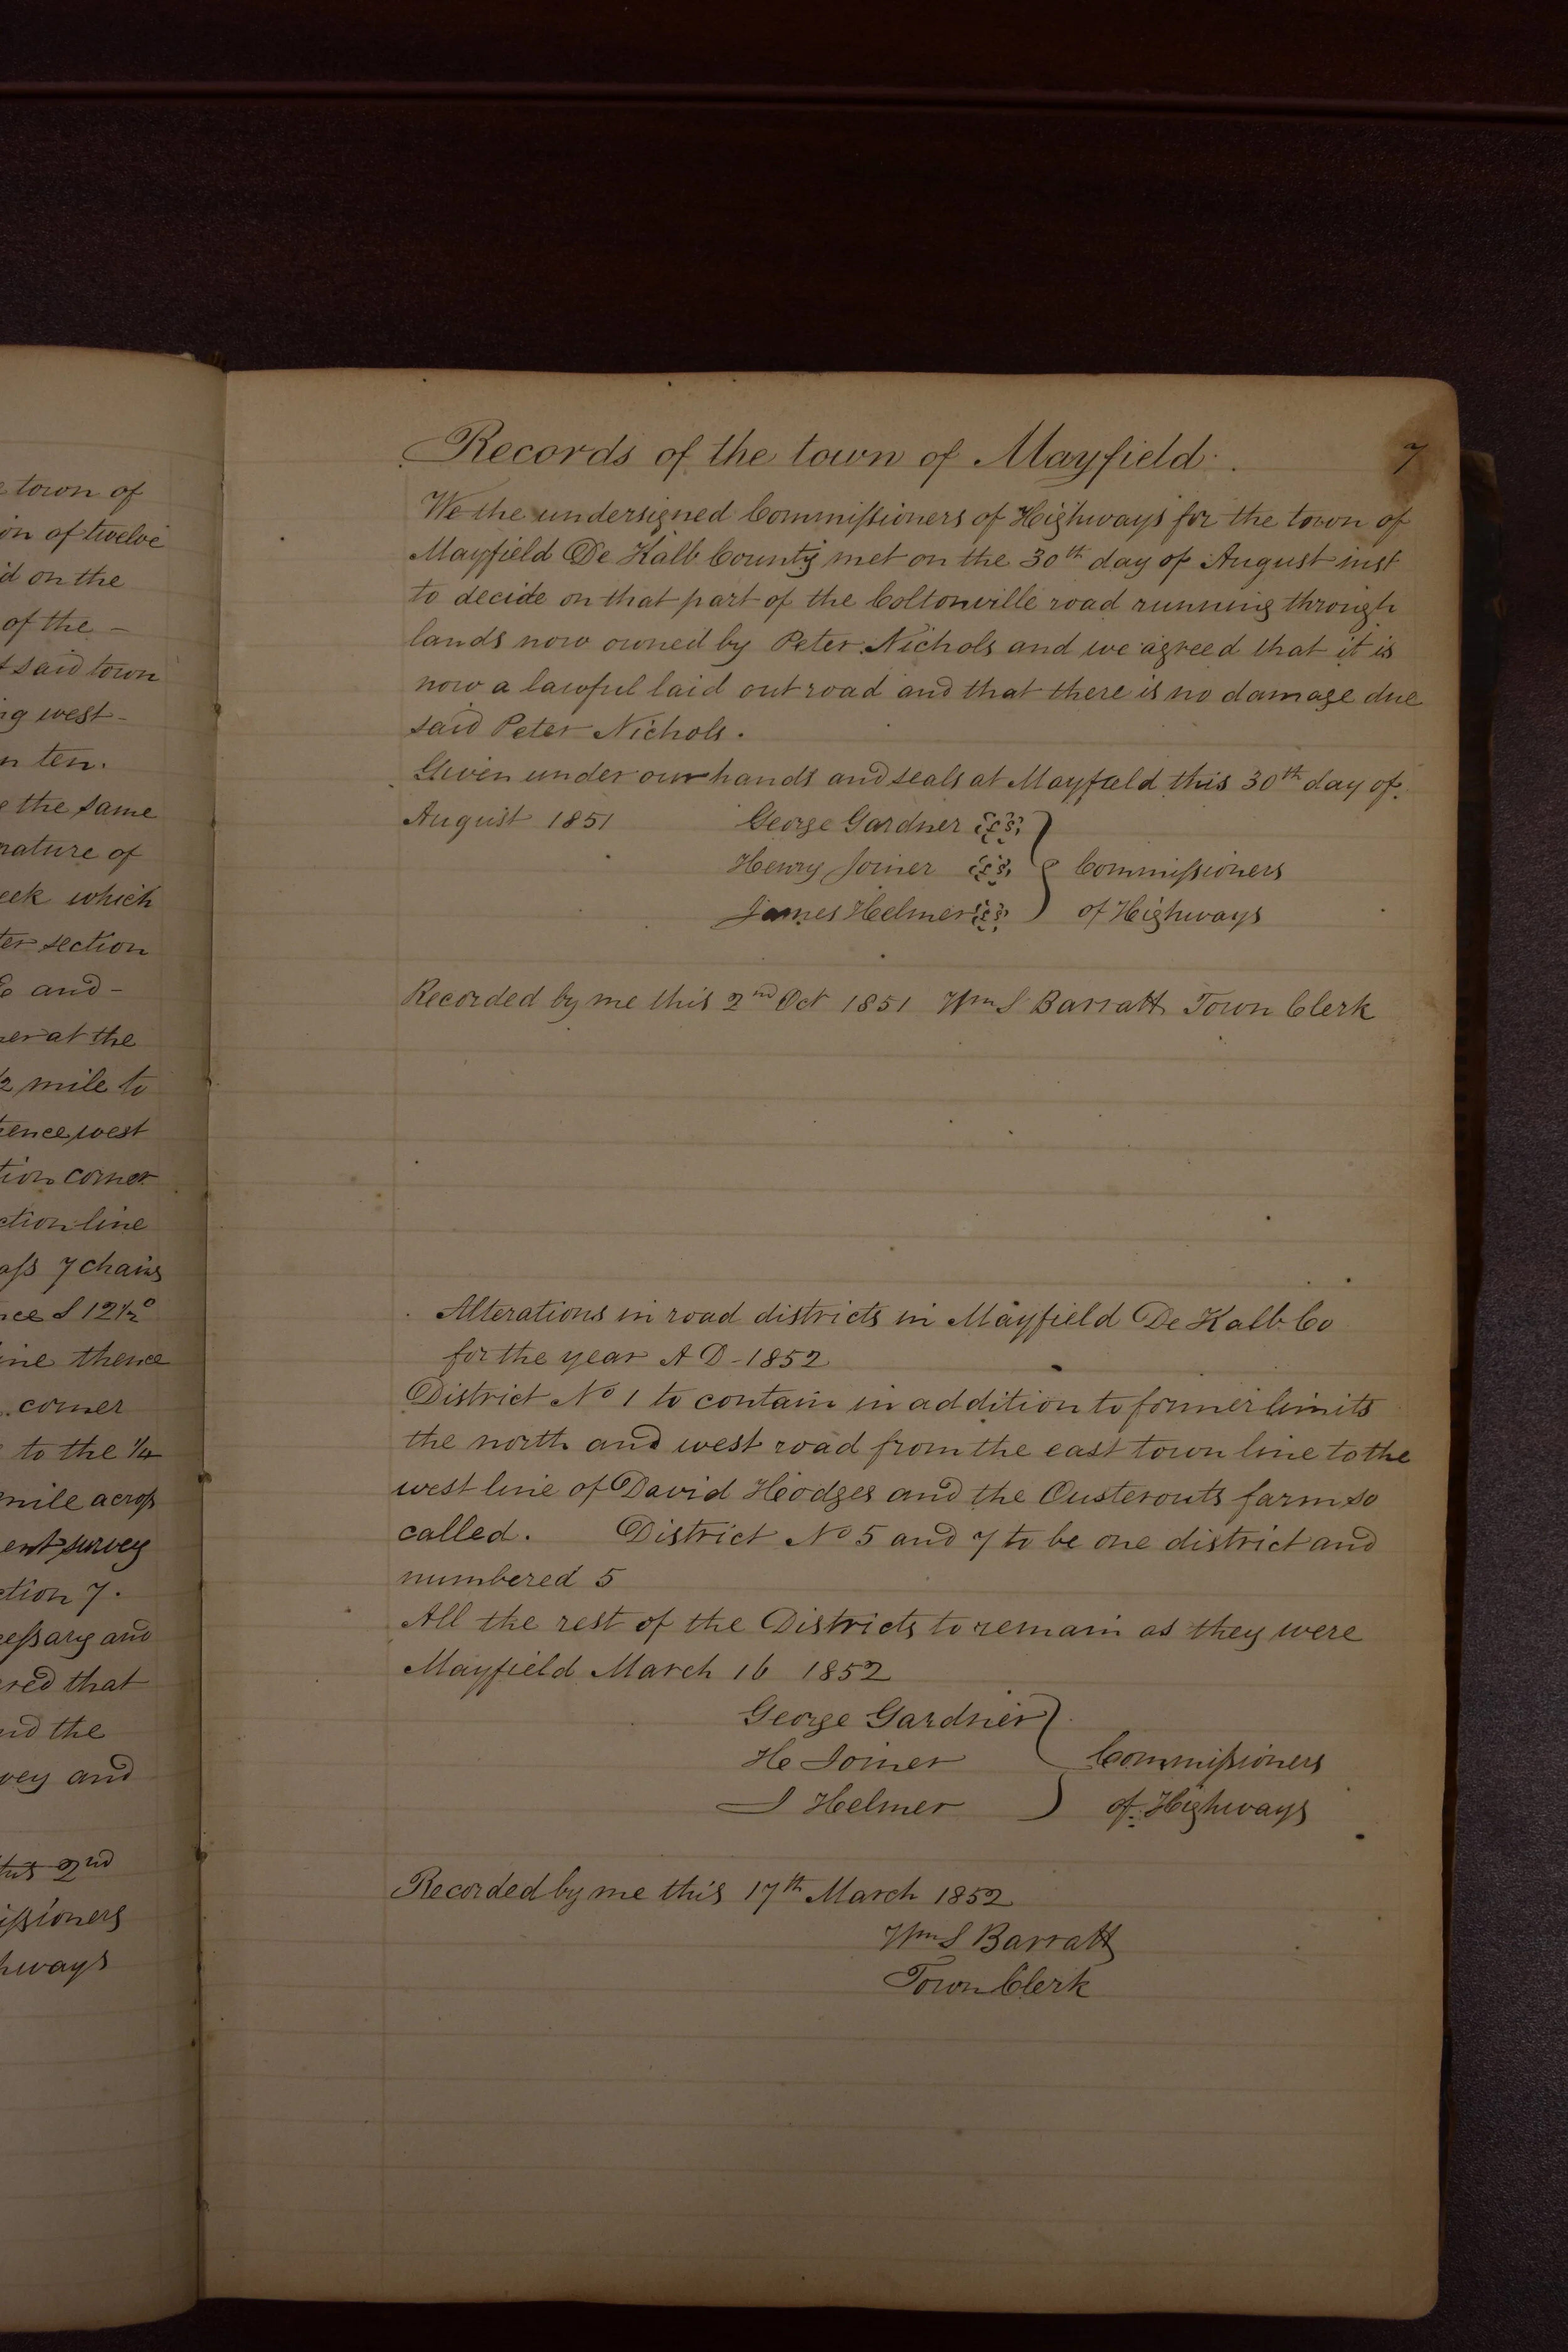 town of
on of twelve
id on the
of the –
t said town
ng west –
n ten.
the same
nature of
eek which
ter section
and –
er at the
½ mile to
ence west
tion corner
ction line
ass 7 chains
nce S 12½°
ine thence
corner
to the ¼
mile across
ent survey
ction 7.
cessary and
red that
nd the
vey and
2nd
issioners
hways
Records of the town of Mayfield. 7
We the undersigned Commissioners of Highways for the town of
Mayfield De Kalb County met on the 30th day of August inst
to decide on that part of the Coltonville road running through
lands now owned by Peter Nichols and we agreed that it is
now a lawful laid out road and that there is no damage due
said Peter Nichols.
Given under our hands and seals at Mayfield this 30th day of
August 1851 George Gardner L S
Henry Joiner L S Commissioners
James Helmer L S of Highways
Recorded by me this 2nd Oct 1851 Wm S Barratt Town Clerk
Alterations in road districts in Mayfield De Kalb Co
for the year A D – 1852
District No 1 to contain in addition to former limits
the north and west road from the east town line to the
west line of David Hodges and the Ousterouts farm so
called. District No 5 and 7 to be one district and
numbered 5
All the rest of the Districts to remain as they were
Mayfield March 16 1852
George Gardner
H Joiner Commissioners
J Helmer of Highways
Recorded by me this 17th March 1852
Wm S Barratt
Town Clerk